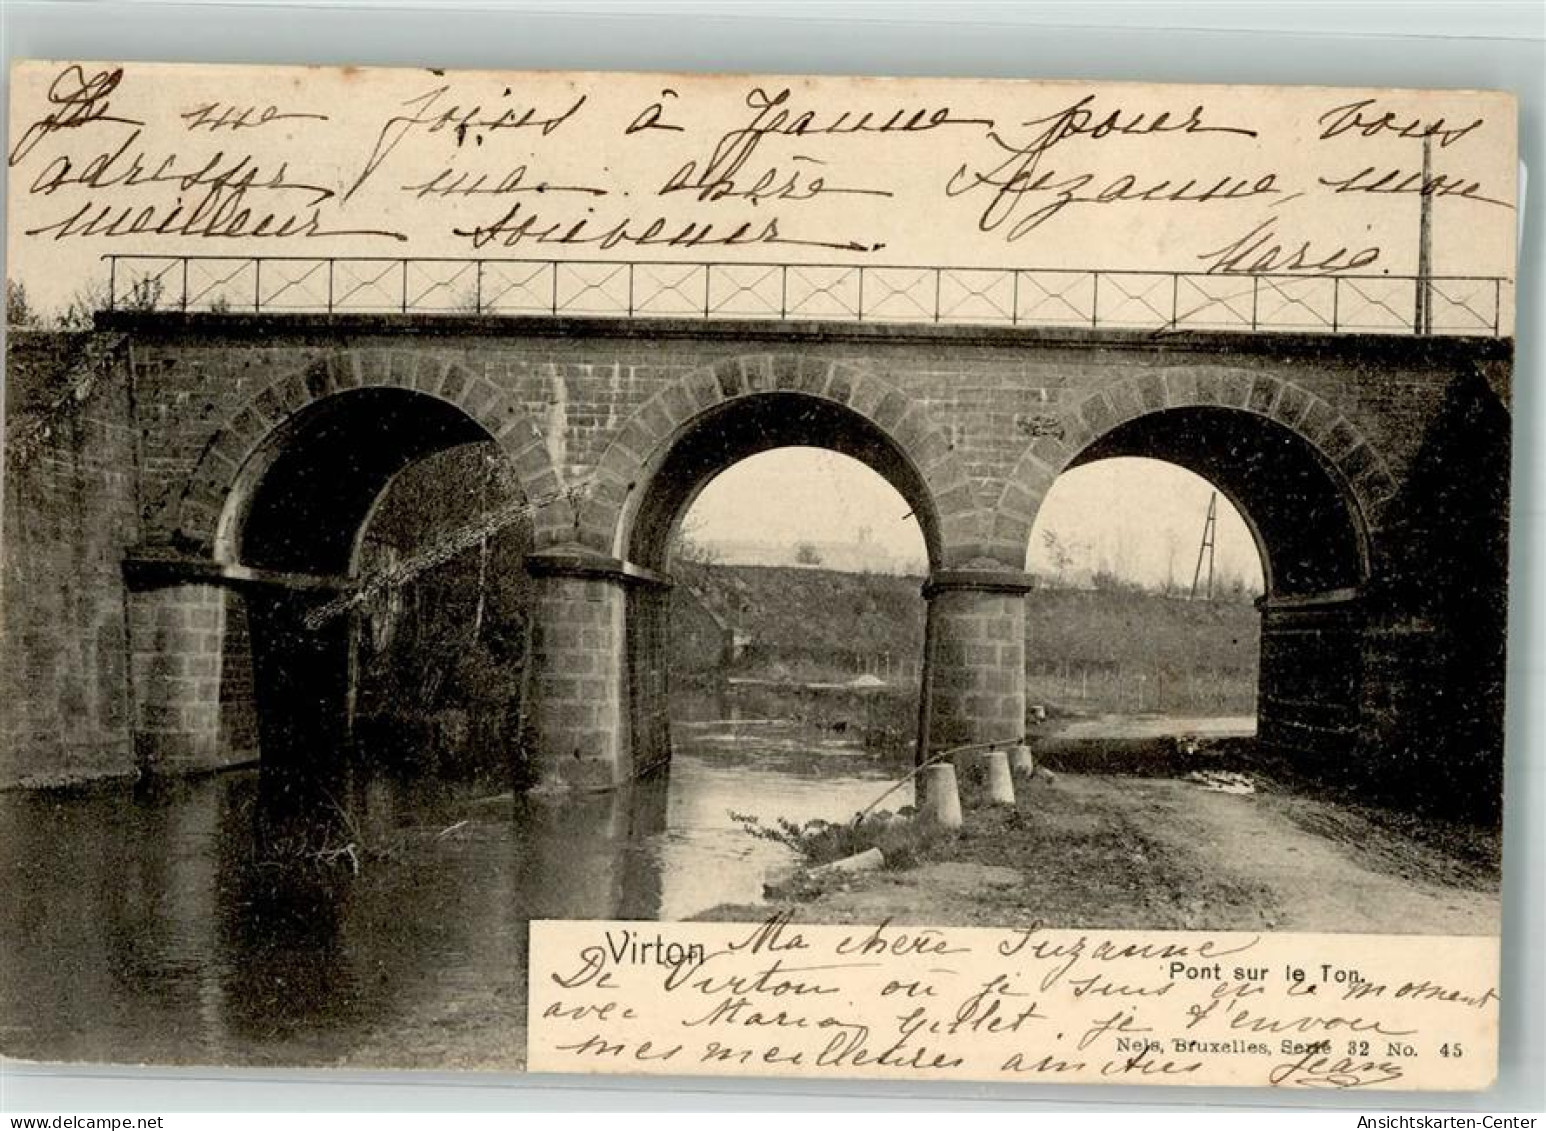 Je me joins à Jeanne pour vous
adresser, ma chère Suzanne, mon
meilleur souvenir.
Marie.
Virton
Ma chère Suzanne
Pont sur le Ton.
De Virton où je suis en ce moment
avec Maria Gillet, je t'envoie
mes meilleures amitiés
Nels, Bruxelles, Serie 32 No. 45
Ansichtskarten-Center